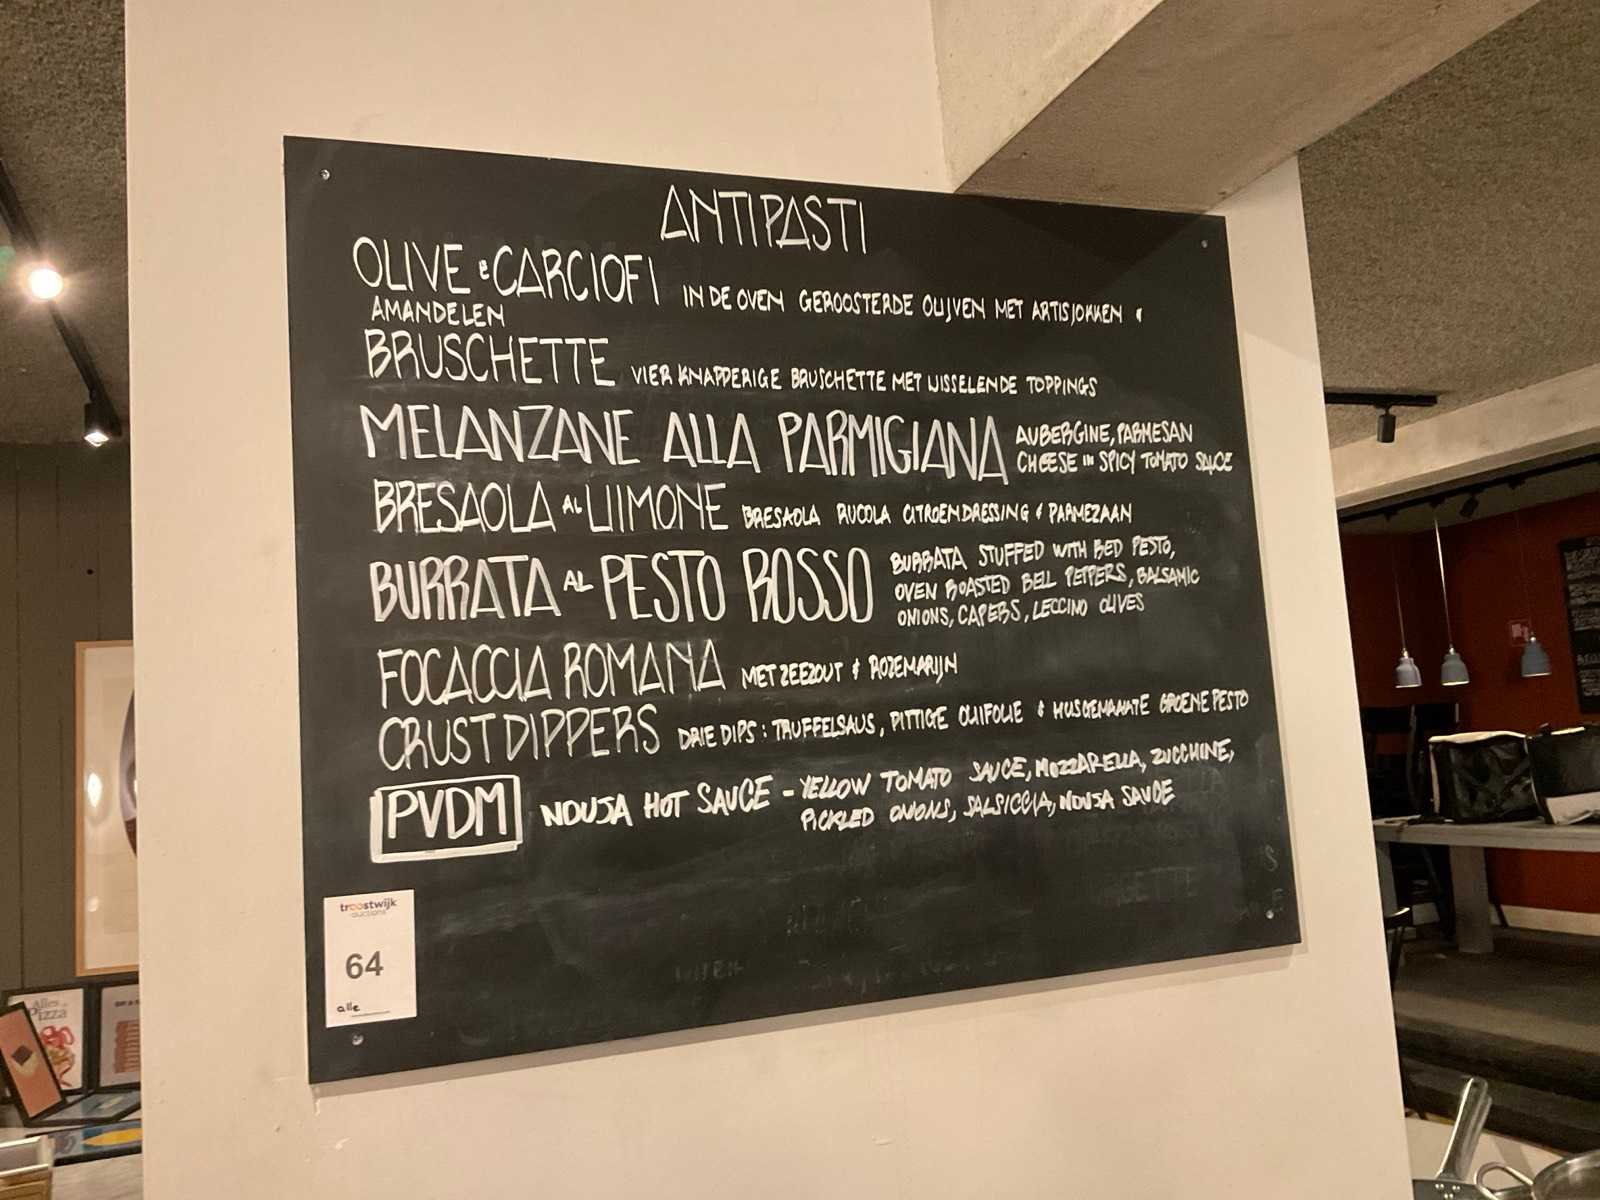 ANTIPASTI
OLIVE E CARCIOFI IN DE OVEN GEROOSTERDE OLIJVEN MET ARTISJOKKEN &
AMANDELEN
BRUSCHETTE VIER KNAPPERIGE BRUSCHETTE MET WISSELENDE TOPPINGS
MELANZANE ALLA PARMIGIANA AUBERGINE, PARMESAN
CHEESE IN SPICY TOMATO SAUCE
BRESAOLA AL LIIMONE BRESAOLA RUCOLA CITROENDRESSING & PARMEZAAN
BURRATA AL PESTO ROSSO BURRATA STUFFED WITH RED PESTO,
OVEN ROASTED BELL PEPPERS, BALSAMIC
ONIONS, CAPERS, LECCINO OLIVES
FOCACCIA ROMANA MET ZEEZOUT & ROZEMARIJN
CRUSTDIPPERS DRIE DIPS: TRUFFELSAUS, PITTIGE OLIJFOLIE & HUISGEMAAKTE GROENE PESTO
PVDM NDUJA HOT SAUCE - YELLOW TOMATO SAUCE, MOZZARELLA, ZUCCHINE,
PICKLED ONIONS, SALSICCIA, NDUJA SAUCE
troostwijk
auctions
64
alle
Alles
Pizza